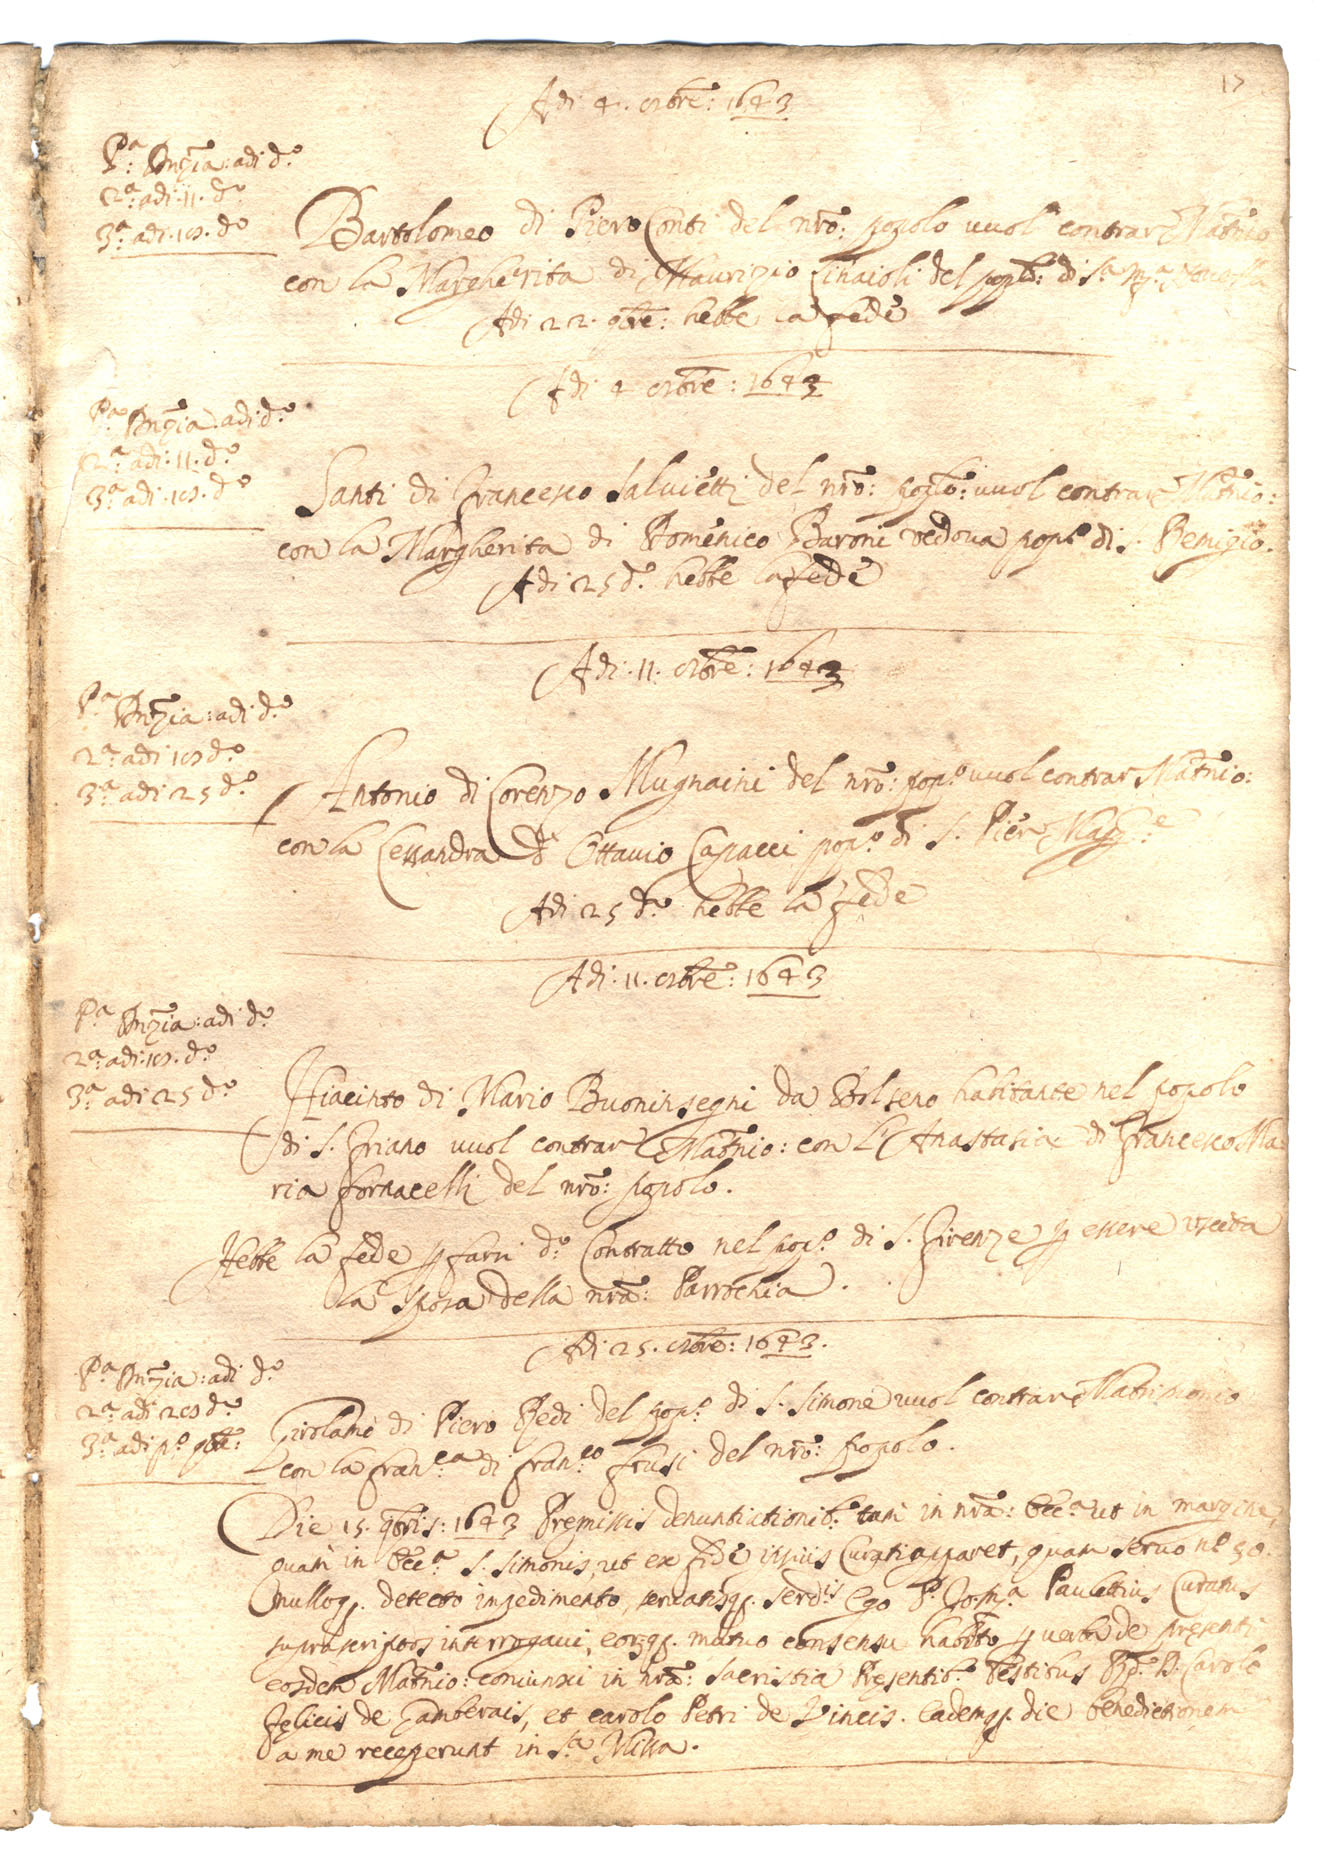 17
Adi 4. 8bre: 1643
Pa: Dnzia: adi do
2a: adi 11. do
3a: adi 18. do
Bartolomeo di Piero Conti del nro: popolo vuol contrar Matrio
con la Margherita di Maurizio Linaioli del poplo: di Sa Ma
Adi 22. 9bre: hebbe la fede
Adi 4 8bre: 1643
Pa Dnzia: adi do
2a: adi 11. do
3a: adi 18. do
Santi di Francesco Salvietti del nro: poplo: vuol contrar Matnio:
con la Margherita di Domenico Baroni vedova popo di S. Remigio.
Adi 25 do hebbe la fede
Adi 11. 8bre: 1643
Pa Dnzia: adi do
2a: adi 18 do
3a: adi 25 do
Antonio di Lorenzo Mugnaini del nro: popo vuol contrar Matnio:
con la Lessandra di Ottavio Capacci popo di S. Pier Magre
Adi 25 do hebbe la fede
Adi 11. 8bre: 1643
Pa Dnzia: adi do
2a: adi 18. do
3a: adi 25 do
Hiacinto di Mario Buoninsegni da Bolseno habitante nel popolo
di S. Friano vuol contrar Matnio: con L' Anastasia di Francesco Ma
ria Fornacelli del nro: popolo.
Hebbe la fede p farsi do Contratto nel popo di S. Firenze p essere uscita
la sposa della nra: Parrochia.
Adi 25. 8bre: 1643.
Pa Dnzia: adi do
2a: adi 28 do
3a: adi po 9bre:
Girolamo di Piero Redi del popo di S. Simone vuol contrar Matrimonio
con la Franca di Franco Frusi del nro: popolo.
Die 15. 9bris: 1643 Premissis denuntiationib. tam in nra: Ecca ut in margine,
quam in Ecca S. Simonis, ut ex fide ipsius Curati apparet, quam servo no 30.
nulloq. detecto inpedimento, servatisq. servdis Ego P. Curatus
suprascriptos interrogavi, eorq. mutuo consensu habito p verba de presenti
eosdem Matnio: coniunxi in nra: sacristia Presentib. Testibus D. Carolo
Felicis de Gamberais, et Carolo Petri de Vincis. Eademq. die benedictionem
a me receperunt in Sa Missa.